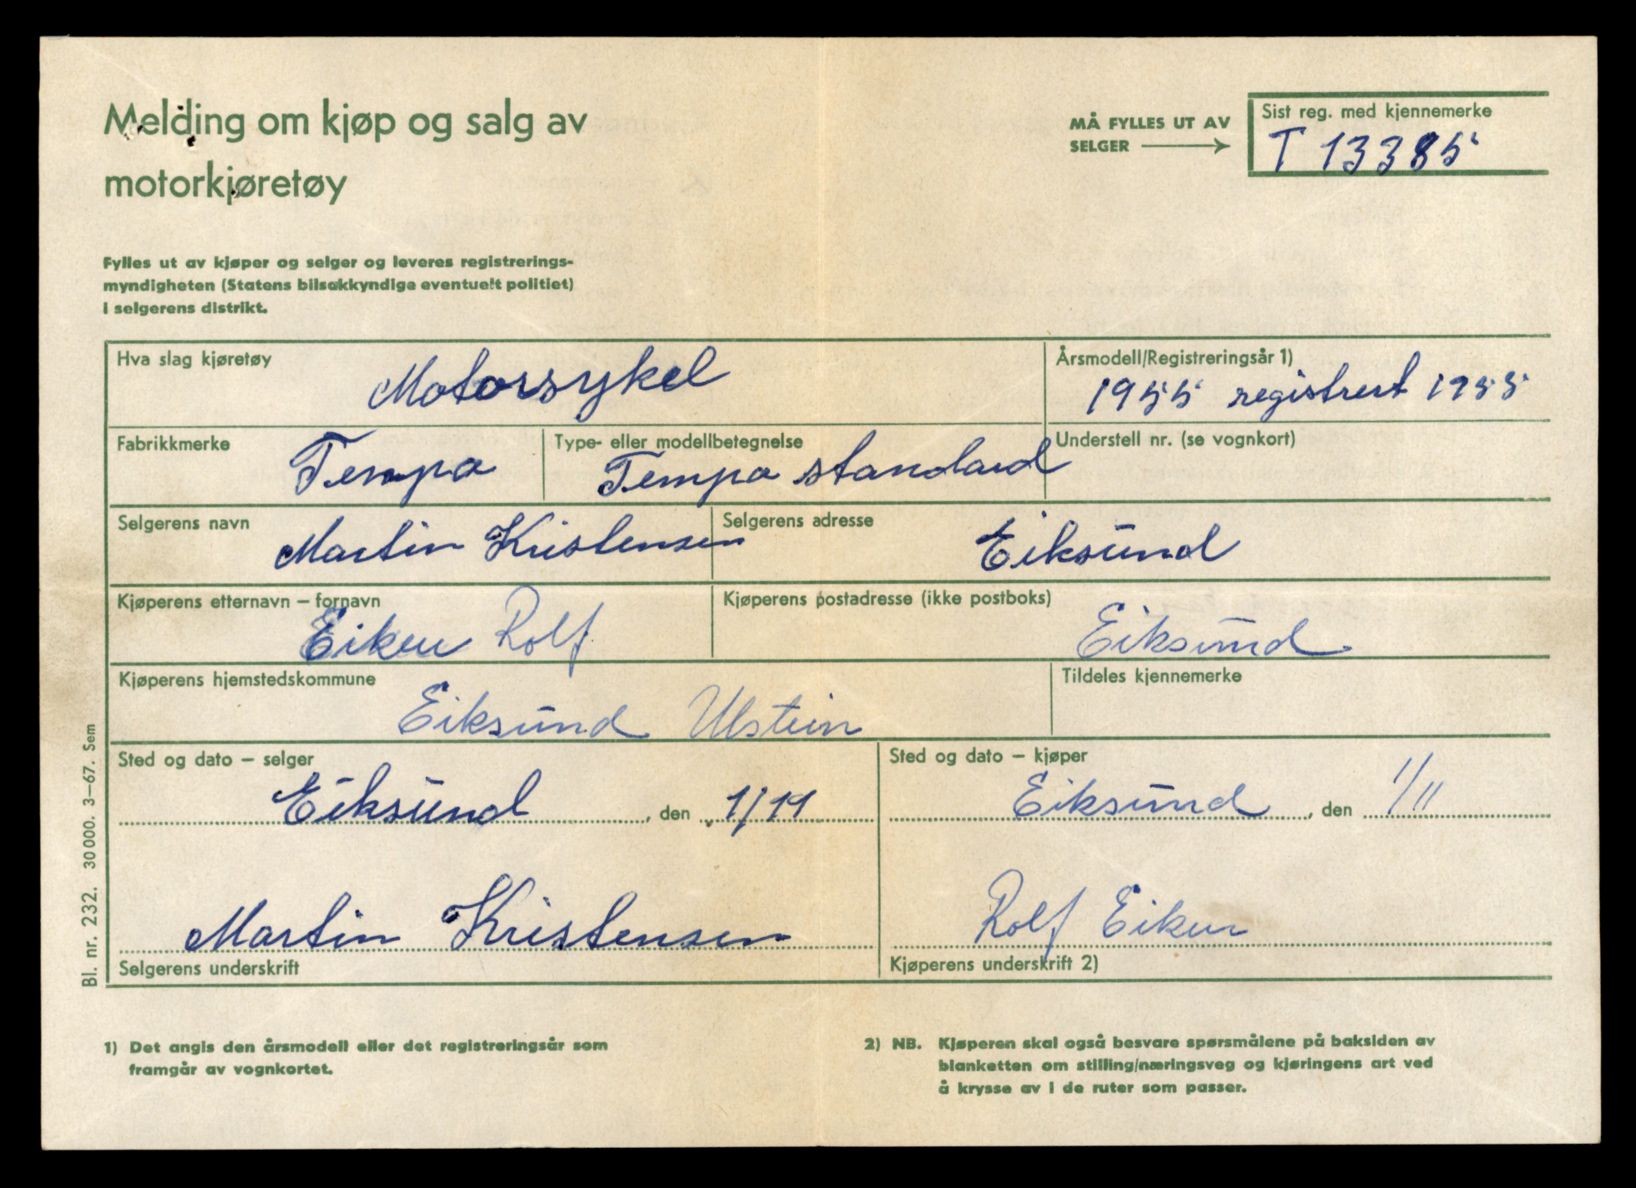 Melding om kjøp og salg av
motorkjøretøy
MÅ FYLLES UT AV
SELGER
Sist reg. med kjennemerke
T 13385
Fylles ut av kjøper og selger og leveres registrerings-
myndigheten (Statens bilsakkyndige eventuelt politiet)
i selgerens distrikt.
Hva slag kjøretøy
Motorsykel
Årsmodell/Registreringsår 1)
1955 registrert 1955
Fabrikkmerke
Tempo
Type- eller modellbetegnelse
Tempo standard
Understell nr. (se vognkort)
Selgerens navn
Martin Kristensen
Selgerens adresse
Eiksund
Kjøperens etternavn – fornavn
Eiken Rolf
Kjøperens postadresse (ikke postboks)
Eiksund
Kjøperens hjemstedskommune
Eiksund Ulstein
Tildeles kjennemerke
Sted og dato – selger
Eiksund, den 1/11
Sted og dato – kjøper
Eiksund, den 1/11
Martin Kristensen
Selgerens underskrift
Rolf Eiken
Kjøperens underskrift 2)
Bl. nr. 232. 30 000. 3–67. Sem
1) Det angis den årsmodell eller det registreringsår som
framgår av vognkortet.
2) NB. Kjøperen skal også besvare spørsmålene på baksiden av
blanketten om stilling/næringsveg og kjøringens art ved
å krysse av i de ruter som passer.